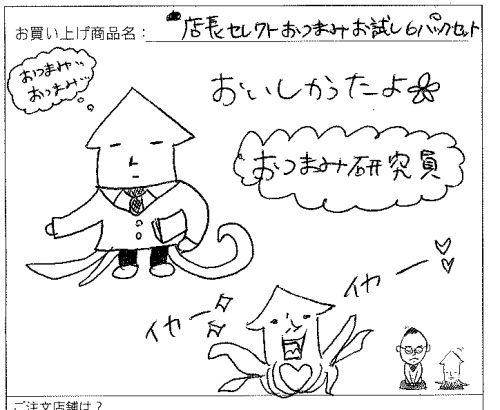 お買い上げ商品名： 店長セレクトおつまみお試し6パックセット
おつまみ…
おつまみ…
おいしかったよ
おつまみ研究員
イカー
イカー
ご注文店舗は？